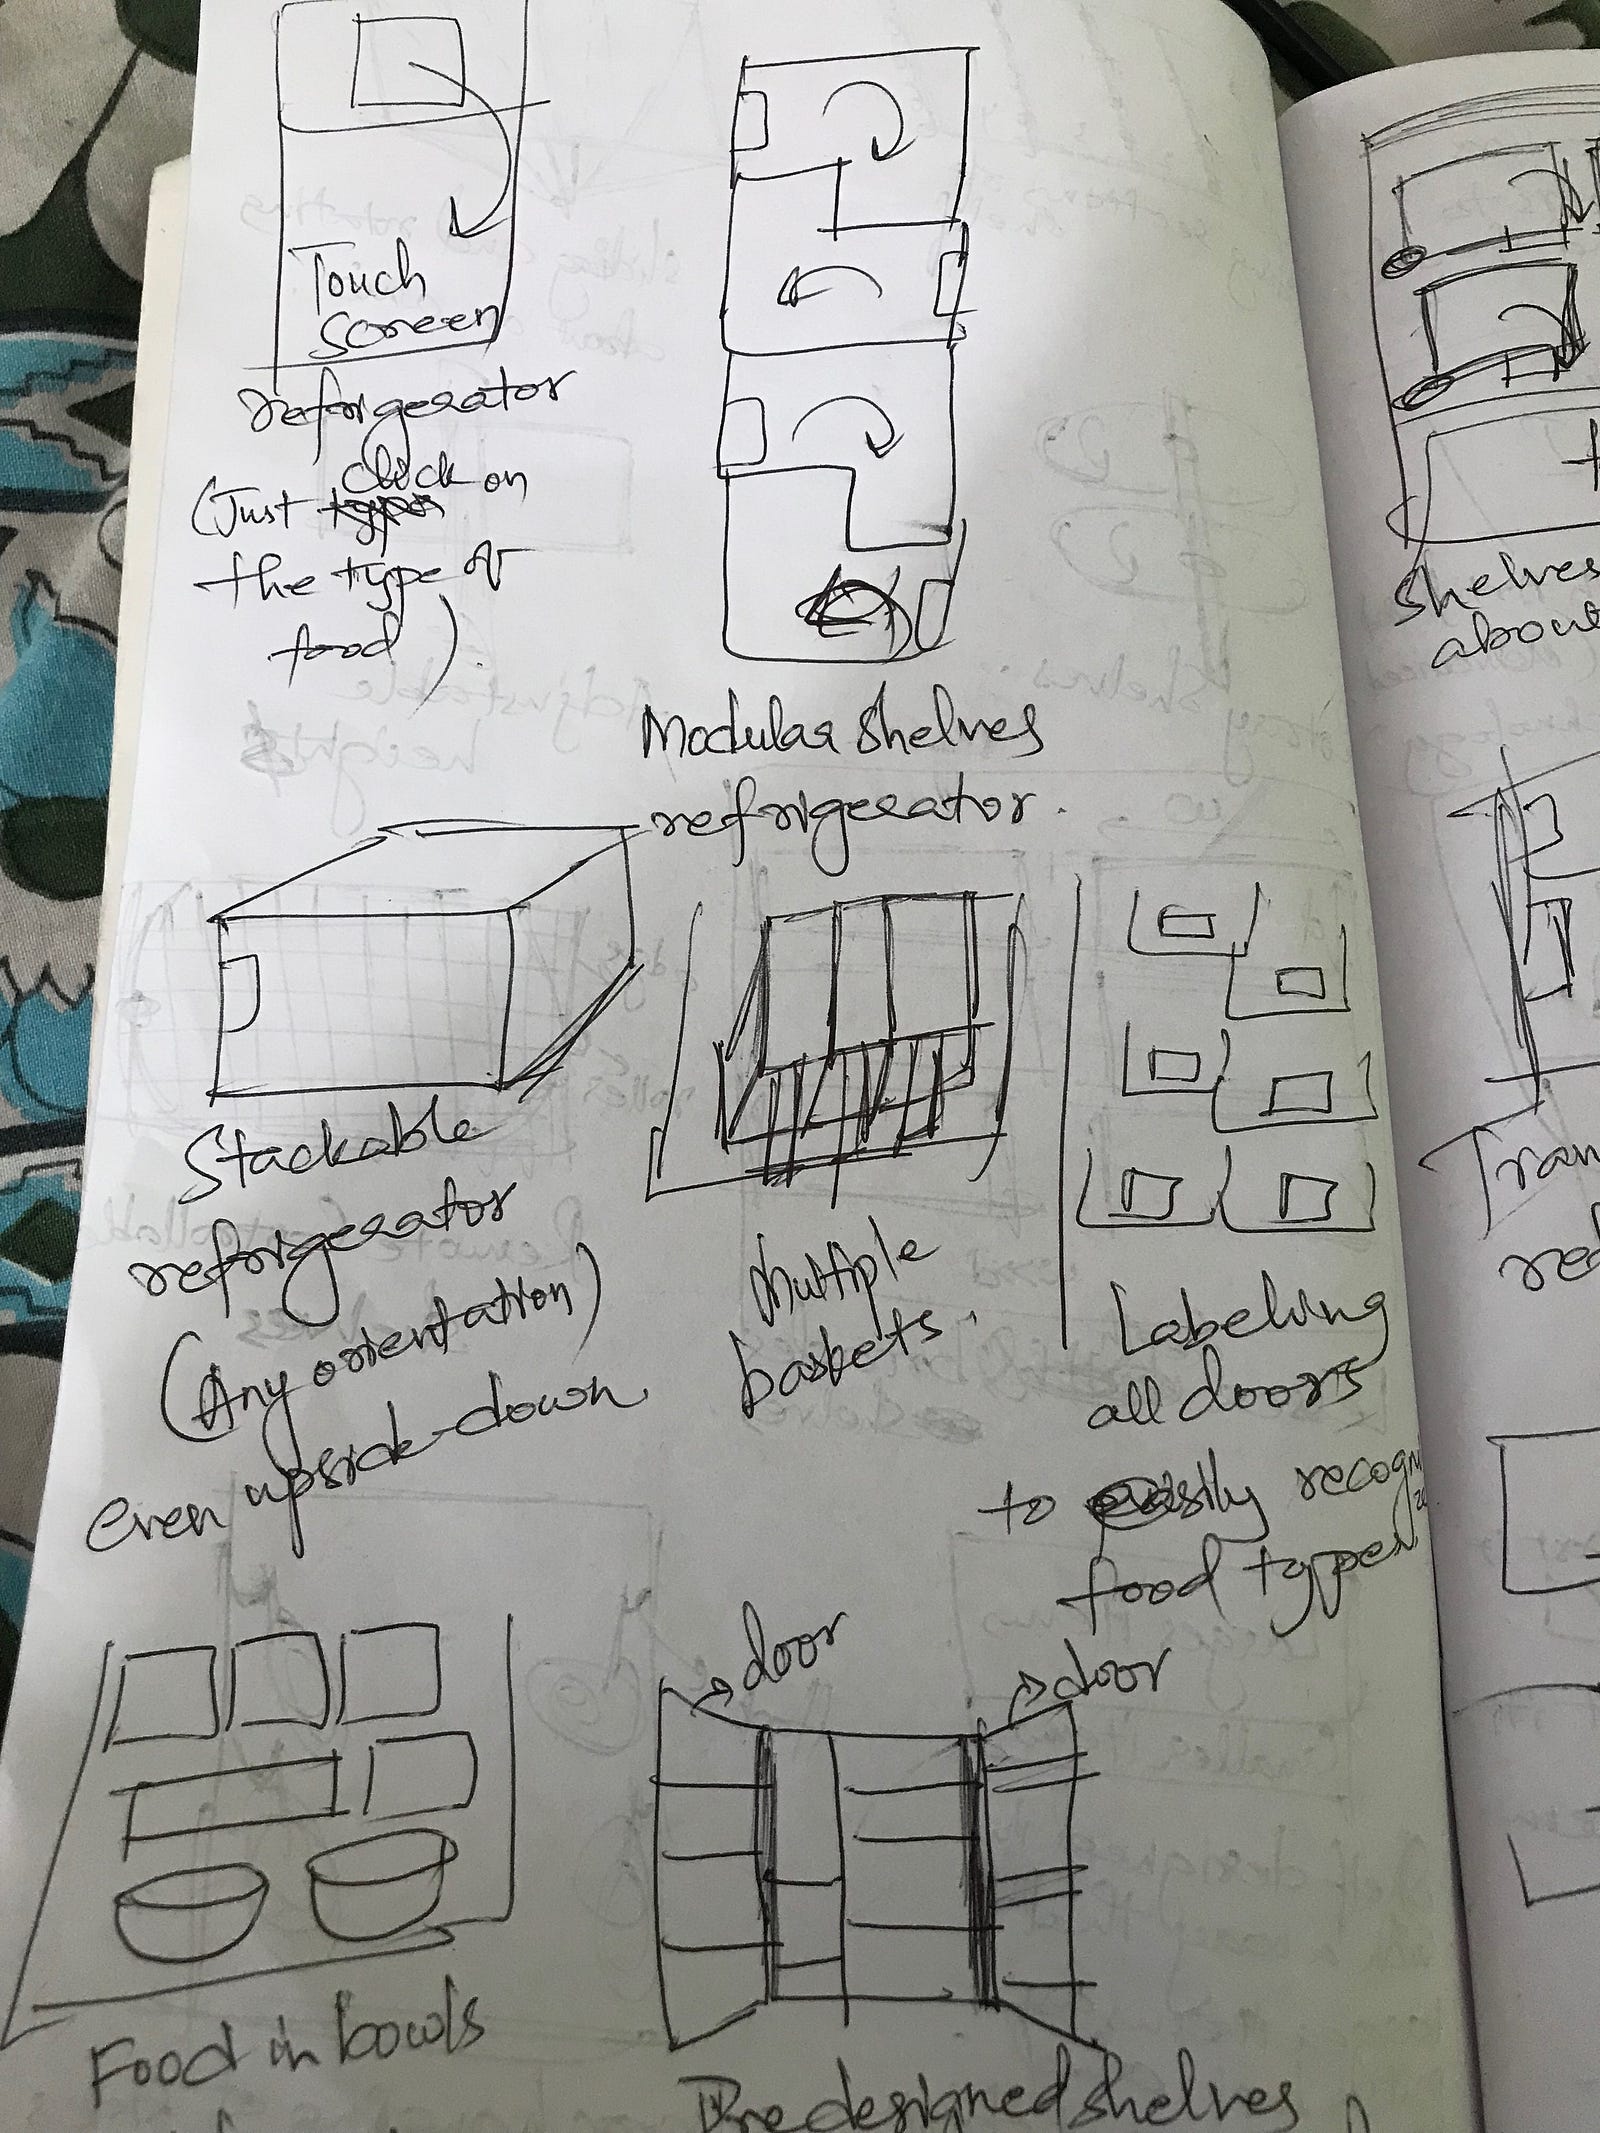 Touch
Screen
refrigerator
click on
(Just
the type of
food).
Modular shelves
refrigerator.
Stackable
refrigerator
(Any orientation)
even upside-down
Multiple
baskets.
Labelling
all doors
to easily
food types
door
door
Food in bowls
Predesigned shelves
Shelves